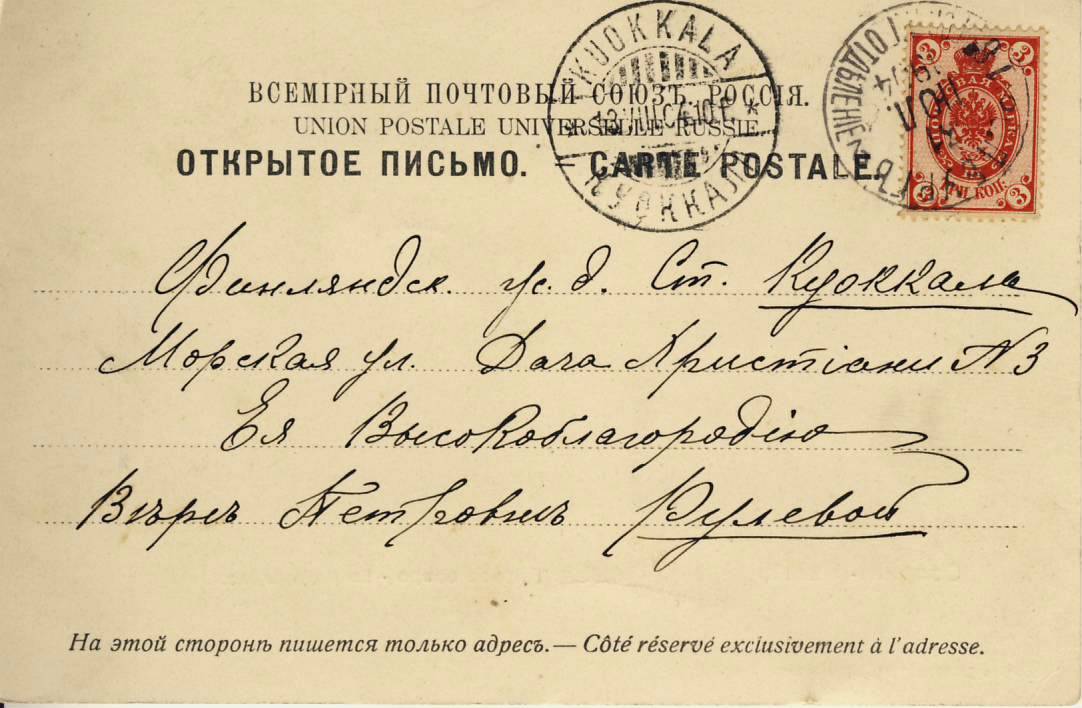 KUOKKALA
13.VII.04.10 F. *
КУОККАЛА
ОТДѢЛЕНІЕ
3 3
ТРИ КОП.
3 3
ВСЕМІРНЫЙ ПОЧТОВЫЙ СОЮЗЪ. РОССІЯ.
UNION POSTALE UNIVERSELLE RUSSIE.
ОТКРЫТОЕ ПИСЬМО. CARTE POSTALE.
Финляндск. ж. д. Ст. Куоккала
Морская ул. Дача Христіани N 3
Ея Высокоблагородію
Вѣрѣ Петровнѣ Рулевой
На этой сторонѣ пишется только адресъ. — Côté réservé exclusivement à l'adresse.